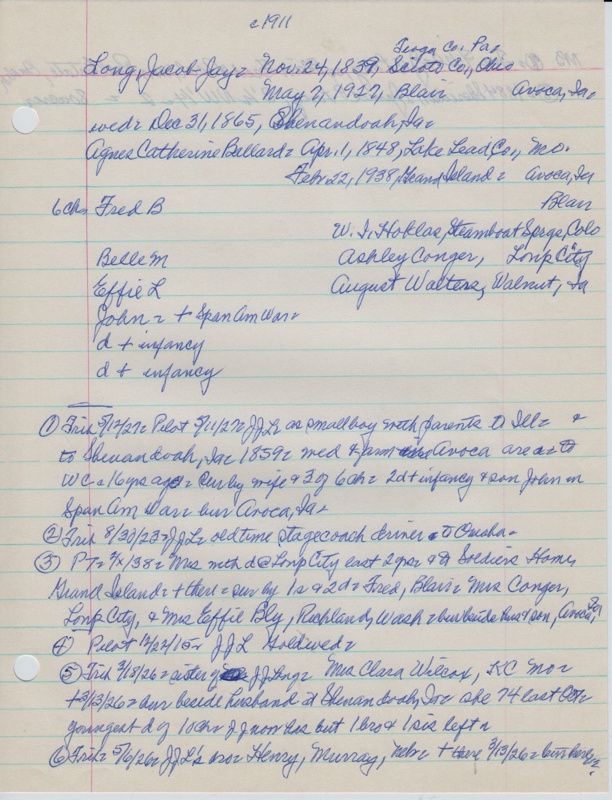 c1911
Tioga Co. Pa.
Long, Jacob Jay = Nov. 24, 1839, Scioto Co., Ohio
May 7, 1927, Blair Avoca, Ia.
wed = Dec 31, 1865, Shenandoah, Ia =
Agnes Catherine Ballard = Apr. 1, 1848, Lake Lead, Co., Mo.
Feb. 22, 1938, Grand Island = Avoca, Ia
6 ch = Fred B Blair
W. I. Hoklas, Steamboat Sprgs, Colo
Belle M Ashley Conger, Loup City
Effie L August Walters, Walnut, Ia
John = + Span Am War =
d + infancy
d + infancy
① Trib 5/12/27 = Pilot 5/11/27 = JJL as small boy with parents to Ill = &
to Shenandoah, Ia = 1859 = wed & farm Avoca area = to
WC = 16 yrs ago = sur by wife & 3 of 6 ch = 2 d + infancy & son John in
Span Am War = bur Avoca, Ia =
② Trib 8/30/23 = JJL = old time stagecoach driver to Omaha =
③ PT = /38 = Mrs with d @ Loup City last 2 yrs = & Soldiers Home,
Grand Island = + there = sur by 1 s & 2 d = Fred, Blair = Mrs Conger,
Loup City, & Mrs Effie Bly, Richland, Wash = bur beside hus & son, Avoca, Ia
④ Pilot 12/22/15 = JJL Gold wed =
⑤ Trib 3/18/26 = sister of JJ Long = Mrs Clara Wilcox, KC Mo =
+ 3/13/26 = bur beside husband at Shenandoah, Ia = she 74 last Oct =
youngest d of 10 ch = JJ now has but 1 bro & 1 sis left =
⑥ Trib = 5/6/26 = JJL's bro = Henry, Murray, Nebr = + there 3/13/26 = bur